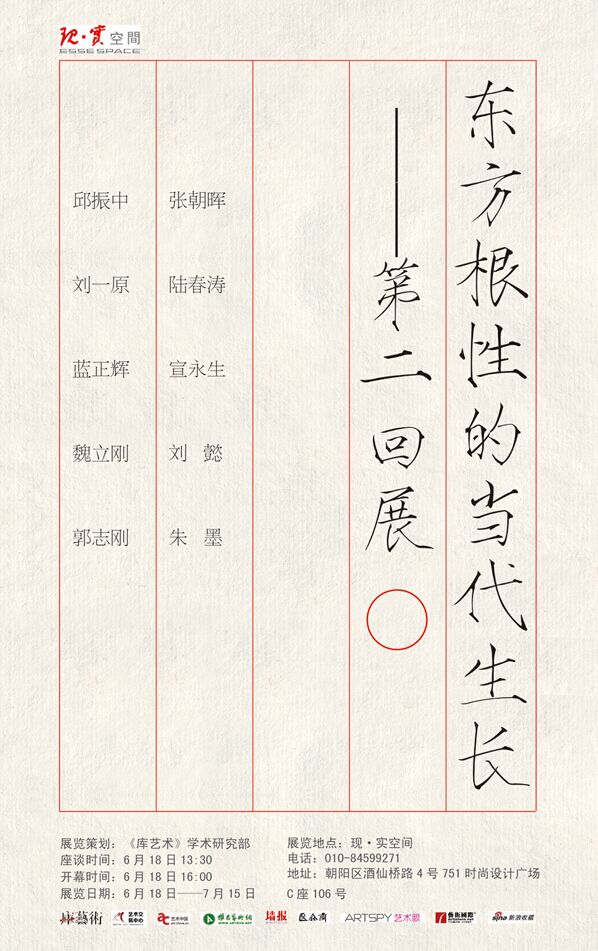 现·实空間
ESSE SPACE
东方根性的当代生长
——第二回展
张朝晖
陆春涛
宣永生
刘 懿
朱 墨
邱振中
刘一原
蓝正辉
魏立刚
郭志刚
展览策划：《库艺术》学术研究部
座谈时间：6月18日13:30
开幕时间：6月18日16:00
展览日期：6月18日——7月15日
展览地点：现·实空间
电话：010-84599271
地址：朝阳区酒仙桥路4号751时尚设计广场
C座106号
库藝術 艺术交易中心 艺术中国 雅昌藝術網 墙报 ARTSPY艺术眼 藝術國際 sina新浪收藏